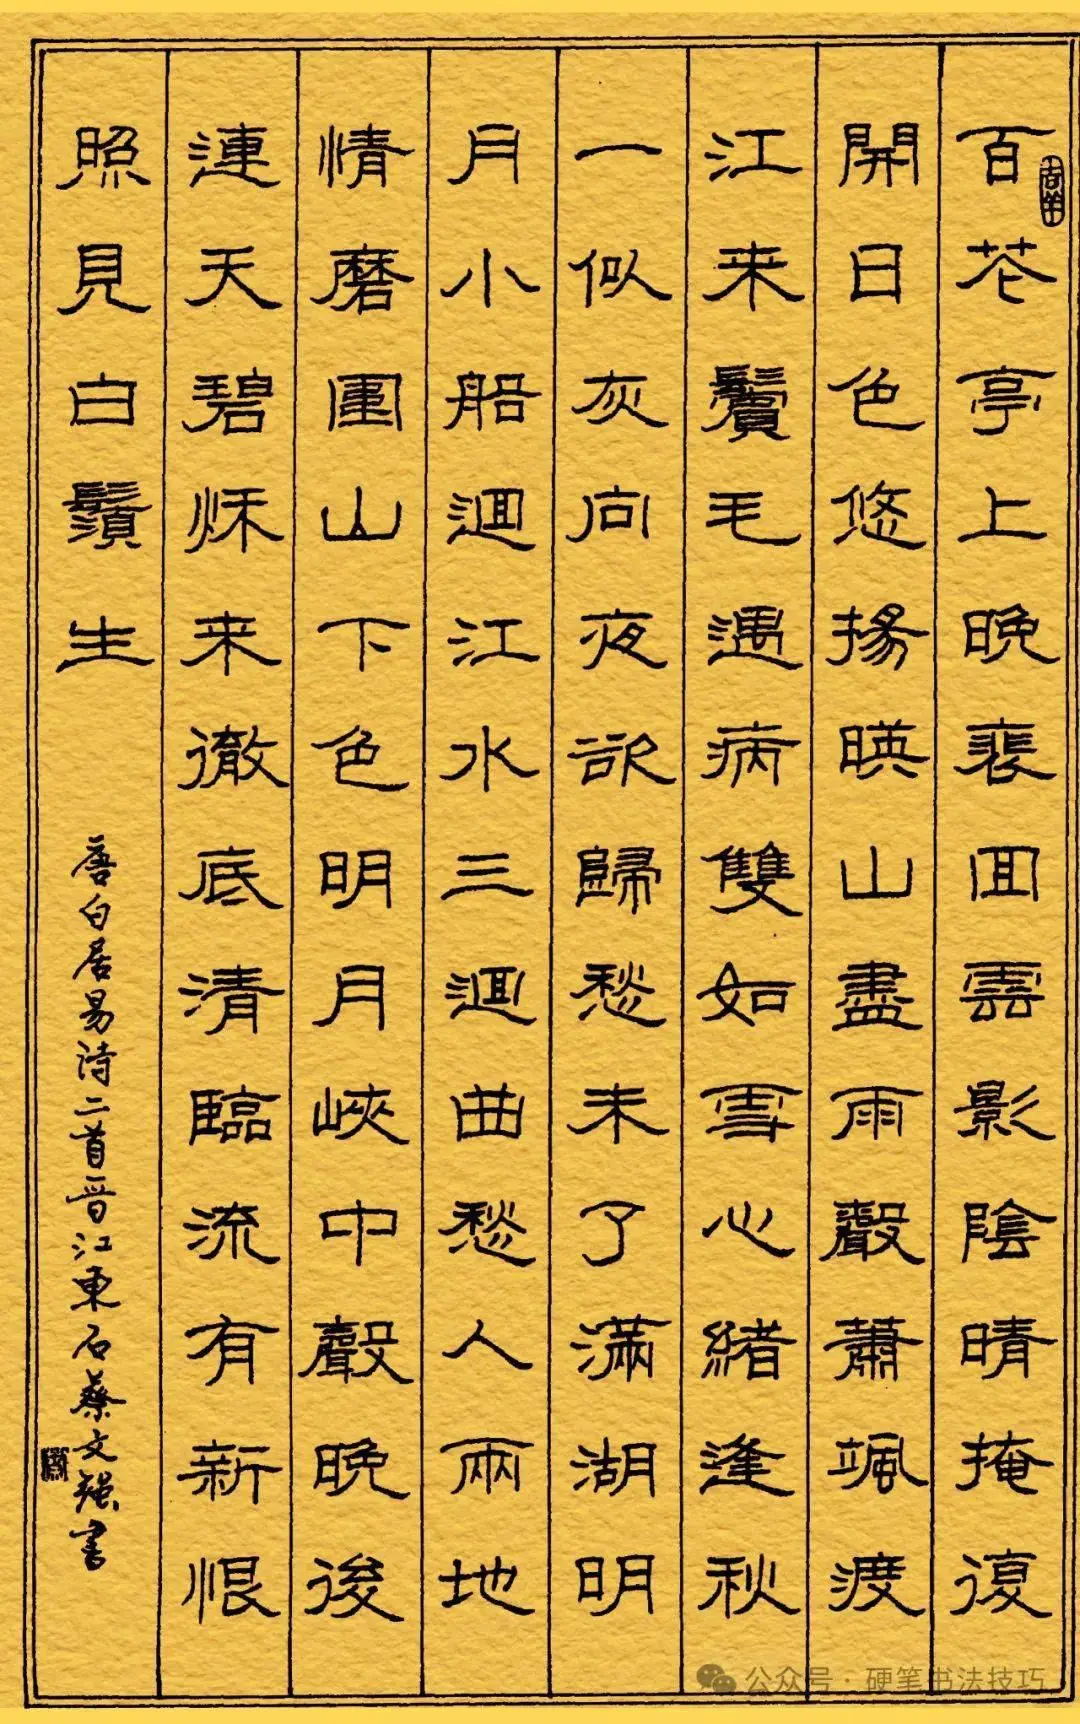 百花亭上晚裵回雲影陰晴掩復
開日色悠揚暎山盡雨聲蕭颯渡
江来鬢毛遇病雙如雪心緒逢秋
一似灰向夜欲歸愁未了滿湖明
月小船迴江水三迴曲愁人兩地
情磨圍山下色明月峽中聲晚後
連天碧秌来徹底清臨流有新恨
照見白鬚生
唐白居易诗二首晋江東石蔡文强書
公众号·硬笔书法技巧